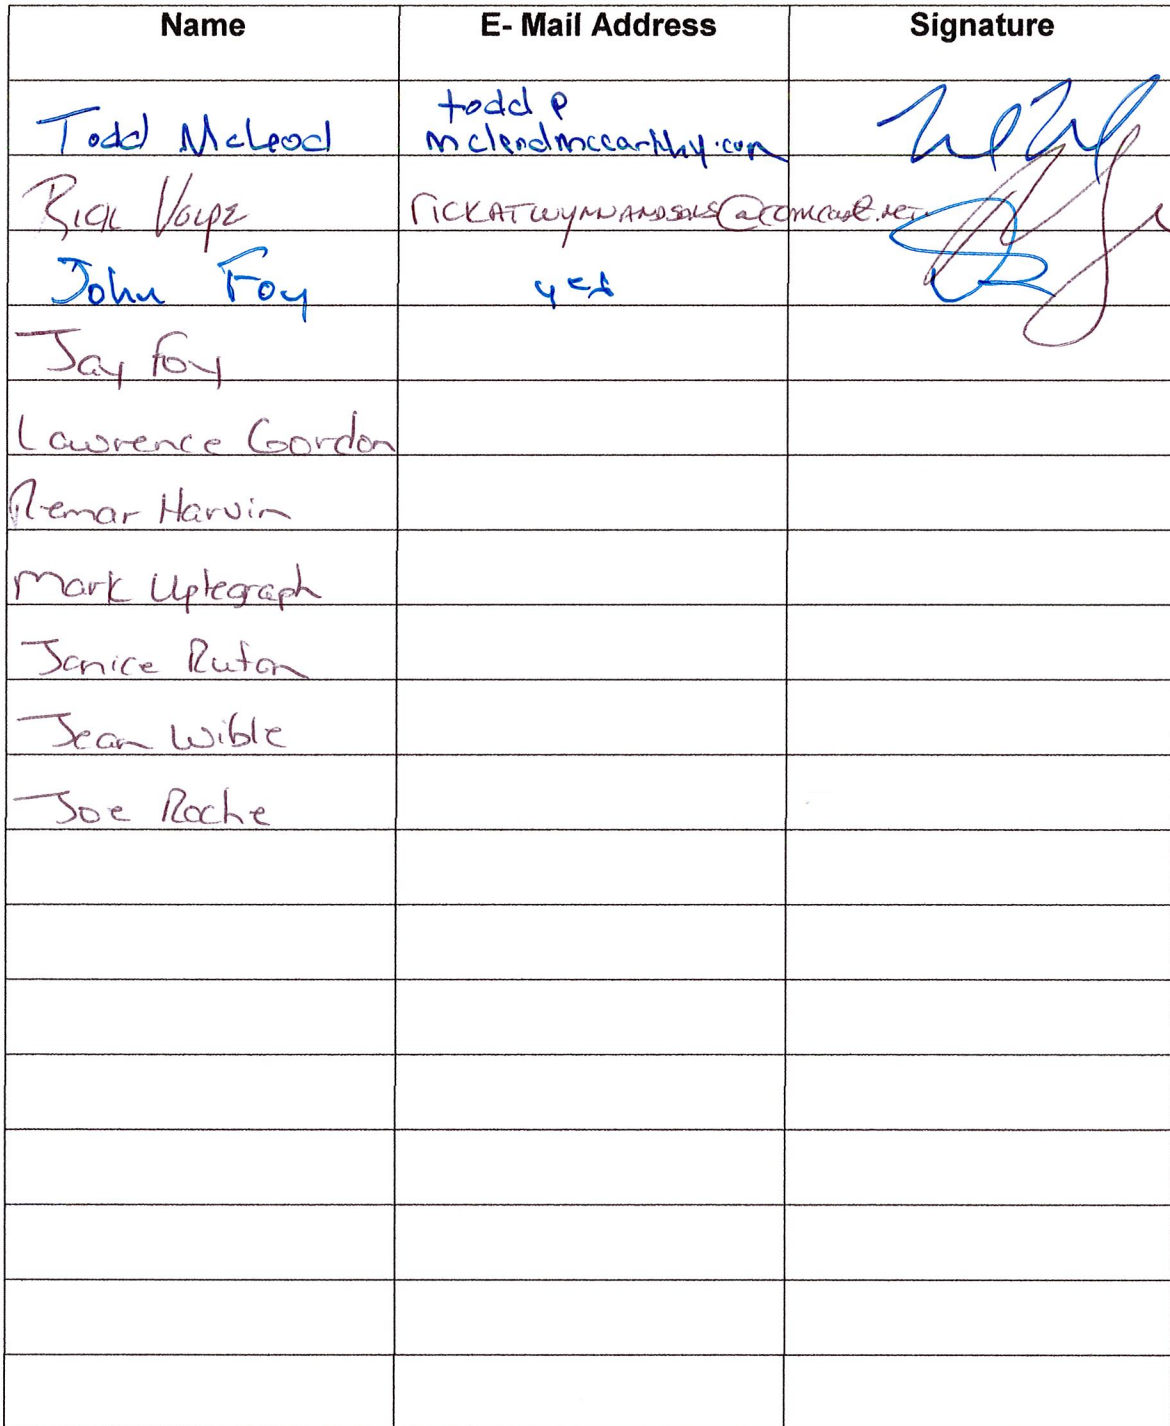 Name E- Mail Address Signature
todd @
Todd McLeod mcleodmccarthy.com
Rick Volpe RICKATWYNNANDSONS@comcast.net
John Foy yes
Jay Foy
Lawrence Gordon
Remar Harvin
Mark Uptegraph
Janice Ruton
Jean Wible
Joe Roche